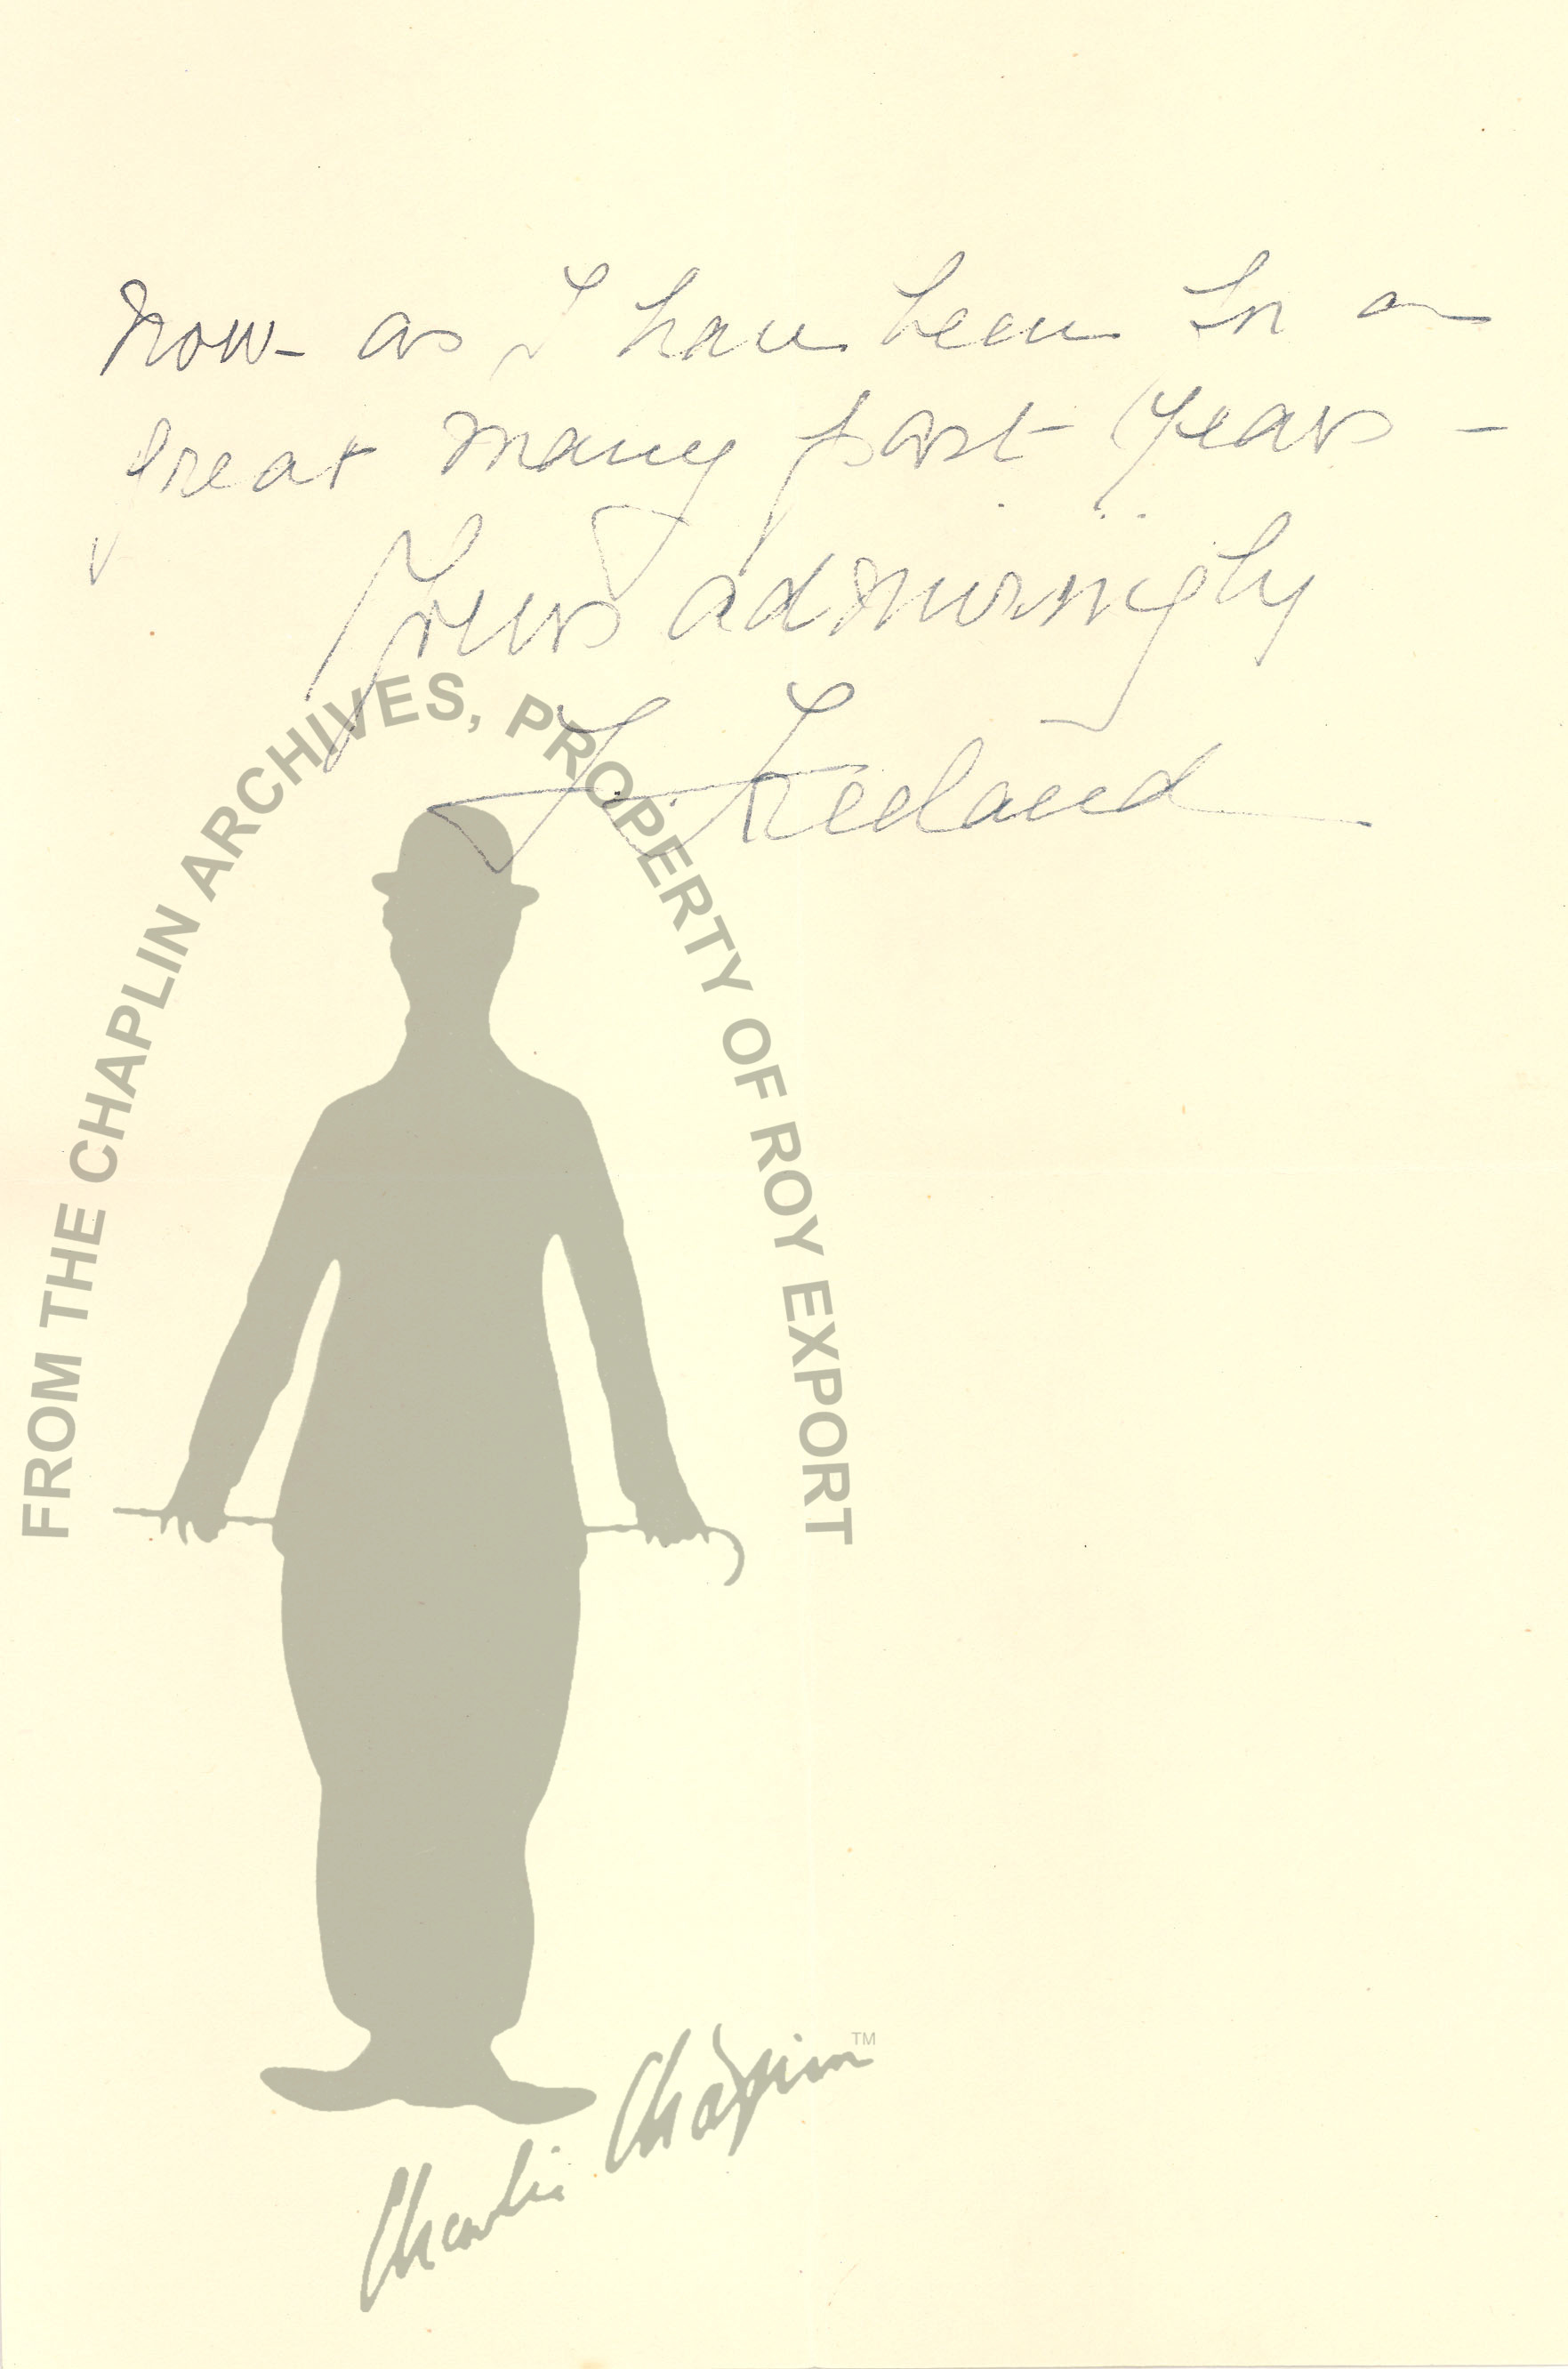 now - as I have been for a
great many past years -
Yours admiringly
FROM THE CHAPLIN ARCHIVES, PROPERTY OF ROY EXPORT
Charlie Chaplin TM